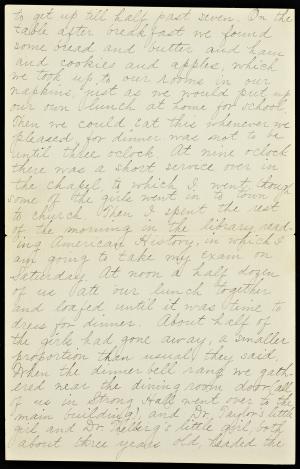 to get up till half past seven. On the
table after breakfast we found
some bread and butter and ham
and cookies and apples, which
we took up to our rooms in our
napkins, just as we would put up
our own lunch at home for school.
Then we could eat this whenever we
pleased, for dinner was not to be
until three oclock. At nine oclock
there was a short service over in
the chapel, to which I went, though
some of the girls went in to town
to church. Then I spent the rest
of the morning in the library read-
ing American History, in which I
am going to take my exam on
Saturday. At noon a half dozen
of us ate our lunch together
and loafed until it was time to
dress for dinner. About half of
the girls had gone away, a smaller
proportion than usual they said.
When the dinner bell rang we gath-
ered near the dining room door (all
of us in Strong Hall went over to the
main building), and Dr. Taylor's little
girl and Dr. Thelberg's little girl, both
about three years old, headed the